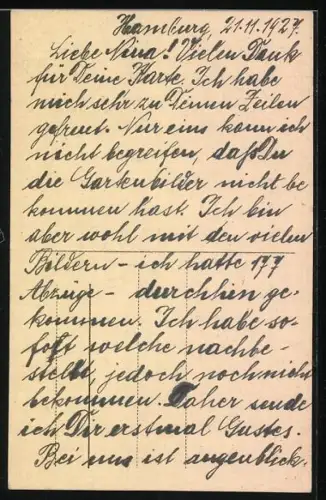 Hamburg, 21.11.1927.
Liebe Nina! Vielen Dank
für Deine Karte. Ich habe
mich sehr zu Deinen Zeilen
gefreut. Nur eins kann ich
nicht begreifen, daß Du
die Gartenbilder nicht be
kommen hast. Ich bin
aber wohl mit den vielen
Bildern – ich hatte 177
Abzüge – durchhin ge-
kommen. Ich habe so-
fort welche nachbe-
stellt, jedoch noch nicht
bekommen. Daher sende
ich Dir erstmal Gustes.
Bei uns ist augenblick.